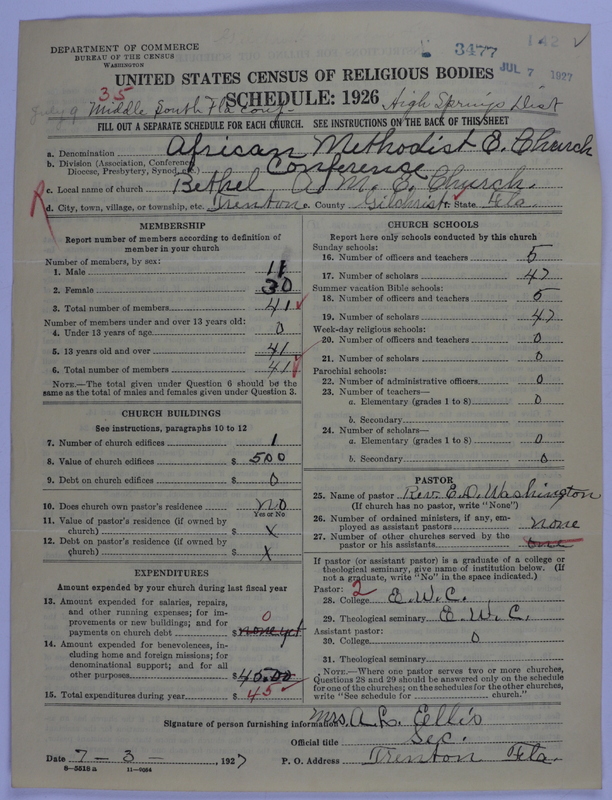 DEPARTMENT OF COMMERCE
BUREAU OF THE CENSUS
WASHINGTON
3477
142 ✓
JUL 7 1927
UNITED STATES CENSUS OF RELIGIOUS BODIES
35
SCHEDULE: 1926
Middle South Fla conf
High Springs Dist
FILL OUT A SEPARATE SCHEDULE FOR EACH CHURCH. SEE INSTRUCTIONS ON THE BACK OF THIS SHEET
a. Denomination African Methodist E. Church
b. Division (Association, Conference, Diocese, Presbytery, Synod, etc.) Conference
c. Local name of church Bethel A. M. E. Church.
d. City, town, village, or township, etc. Trenton e. County Gilchrist f. State Fla.
MEMBERSHIP
Report number of members according to definition of member in your church
Number of members, by sex:
1. Male 11
2. Female 30
3. Total number of members 41 ✓
Number of members under and over 13 years old:
4. Under 13 years of age 0
5. 13 years old and over 41
6. Total number of members 41 ✓
NOTE.—The total given under Question 6 should be the same as the total of males and females given under Question 3.
CHURCH BUILDINGS
See instructions, paragraphs 10 to 12
7. Number of church edifices 1
8. Value of church edifices $ 500
9. Debt on church edifices $ 0
10. Does church own pastor's residence No
Yes or No
11. Value of pastor's residence (if owned by church) $ X
12. Debt on pastor's residence (if owned by church) $ X
EXPENDITURES
Amount expended by your church during last fiscal year
13. Amount expended for salaries, repairs, and other running expenses; for improvements or new buildings; and for payments on church debt $ none yet 0
14. Amount expended for benevolences, including home and foreign missions; for denominational support; and for all other purposes $ 45.00
15. Total expenditures during year $ 45 ✓
CHURCH SCHOOLS
Report here only schools conducted by this church
Sunday schools:
16. Number of officers and teachers 5
17. Number of scholars 47
Summer vacation Bible schools:
18. Number of officers and teachers 5
19. Number of scholars 47
Week-day religious schools:
20. Number of officers and teachers 0
21. Number of scholars 0
Parochial schools:
22. Number of administrative officers 0
23. Number of teachers—
a. Elementary (grades 1 to 8) 0
b. Secondary
24. Number of scholars—
a. Elementary (grades 1 to 8) 0
b. Secondary 0
PASTOR
25. Name of pastor Rev. E. D. Washington
(If church has no pastor, write "None")
26. Number of ordained ministers, if any, employed as assistant pastors none
27. Number of other churches served by the pastor or his assistants one
If pastor (or assistant pastor) is a graduate of a college or theological seminary, give name of institution below. (If not a graduate, write "No" in the space indicated.)
Pastor: 2
28. College E. W. C.
29. Theological seminary E. W. C.
Assistant pastor:
30. College 0
31. Theological seminary
NOTE.—Where one pastor serves two or more churches, Questions 28 and 29 should be answered only on the schedule for one of the churches; on the schedules for the other churches, write "See schedule for church."
Signature of person furnishing information Mrs. A. L. Ellis
Official title Sec.
Date 7-3-, 1927 P. O. Address Trenton Fla.
8-5518 a 11-9084